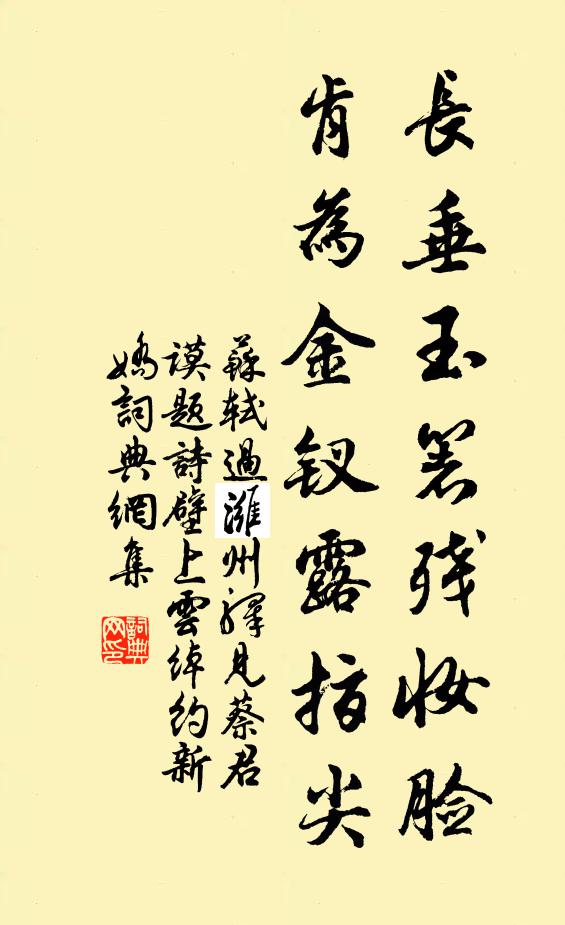 長垂玉箸残妝臉
肯為金釵露指尖
蘇軾過濰州驛見蔡君
謨題詩壁上雲綽約新
嬌詞典網集
詞典网印